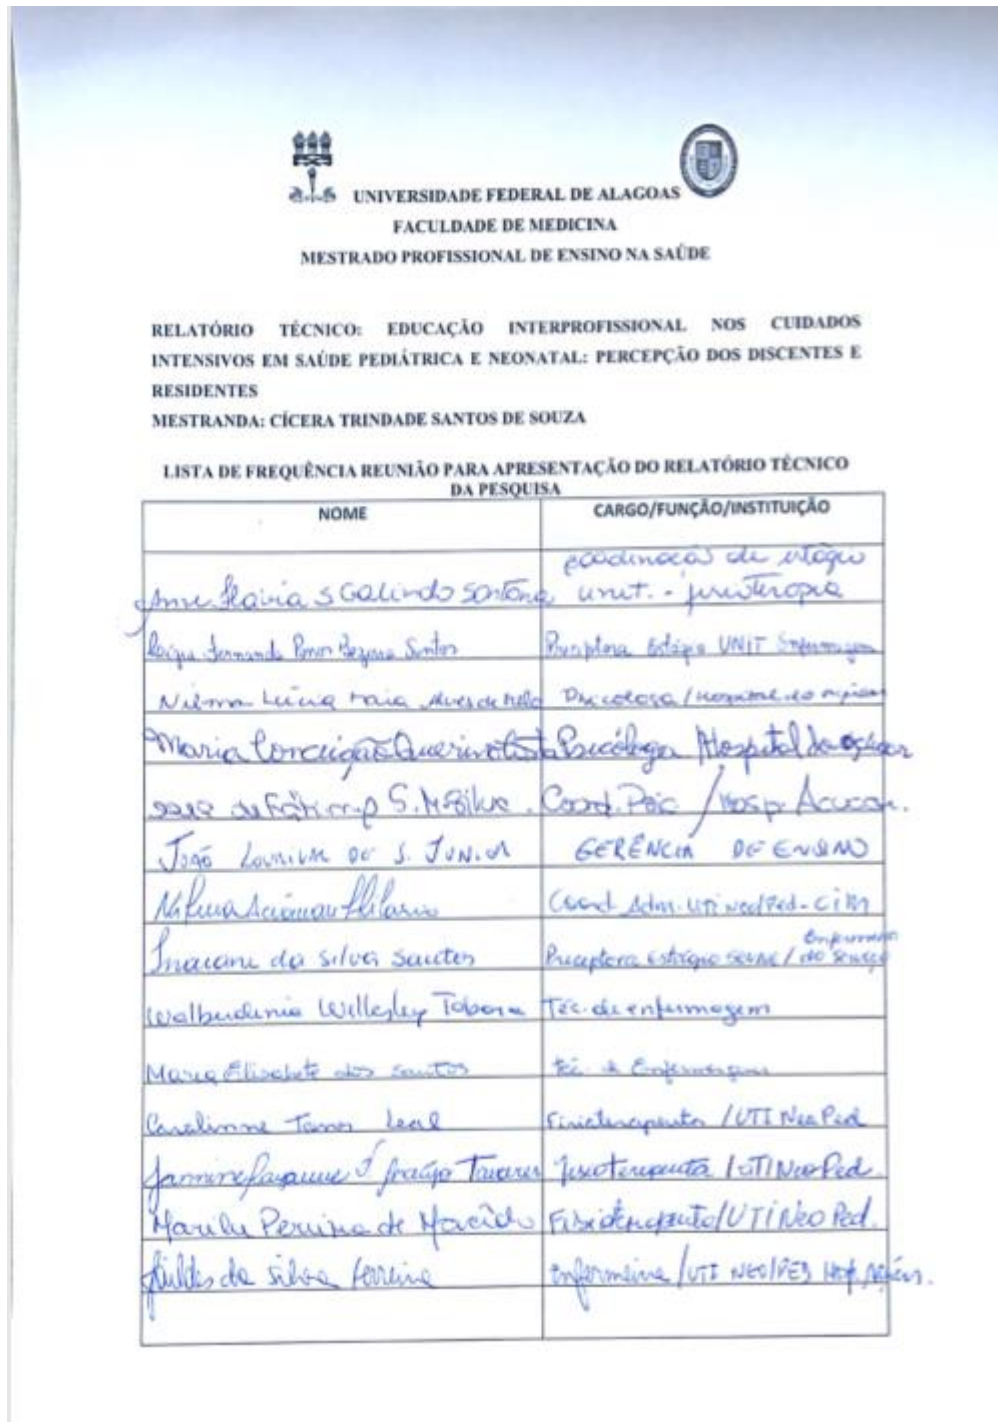 UNIVERSIDADE FEDERAL DE ALAGOAS
FACULDADE DE MEDICINA
MESTRADO PROFISSIONAL DE ENSINO NA SAÚDE
RELATÓRIO TÉCNICO: EDUCAÇÃO INTERPROFISSIONAL NOS CUIDADOS
INTENSIVOS EM SAÚDE PEDIÁTRICA E NEONATAL: PERCEPÇÃO DOS DISCENTES E
RESIDENTES
MESTRANDA: CÍCERA TRINDADE SANTOS DE SOUZA
LISTA DE FREQUÊNCIA REUNIÃO PARA APRESENTAÇÃO DO RELATÓRIO TÉCNICO
DA PESQUISA
NOME CARGO/FUNÇÃO/INSTITUIÇÃO
coordenação de estágio
Flavia S Galindo Santana unit. - fisioterapia
Fernanda Bezerra Santos Preceptora Estágio UNIT Enfermagem
Nilma Lúcia Maia Alves de Melo Psicóloga / Hospital do açúcar
Maria Conceição Psicóloga Hospital do açúcar
de Fátima S. Coord. / Hosp. Açucar.
João DE S. JUNIOR GERÊNCIA DE ENSINO
Coord. Adm. UTI Neo/Ped -
Enfermeira
da Silva Santos Preceptora estágio / do serviço
Willesley Tabosa Téc. de enfermagem
Maria Elisabete dos Santos Téc. de Enfermagem
Leal Fisioterapeuta / UTI Neo Ped
Araújo Tavares Fisioterapeuta / UTI Neo Ped.
Marilu Pereira de Macêdo Fisioterapeuta / UTI Neo Ped.
da Silva Ferreira Enfermeira / UTI NEO/PED Hosp.